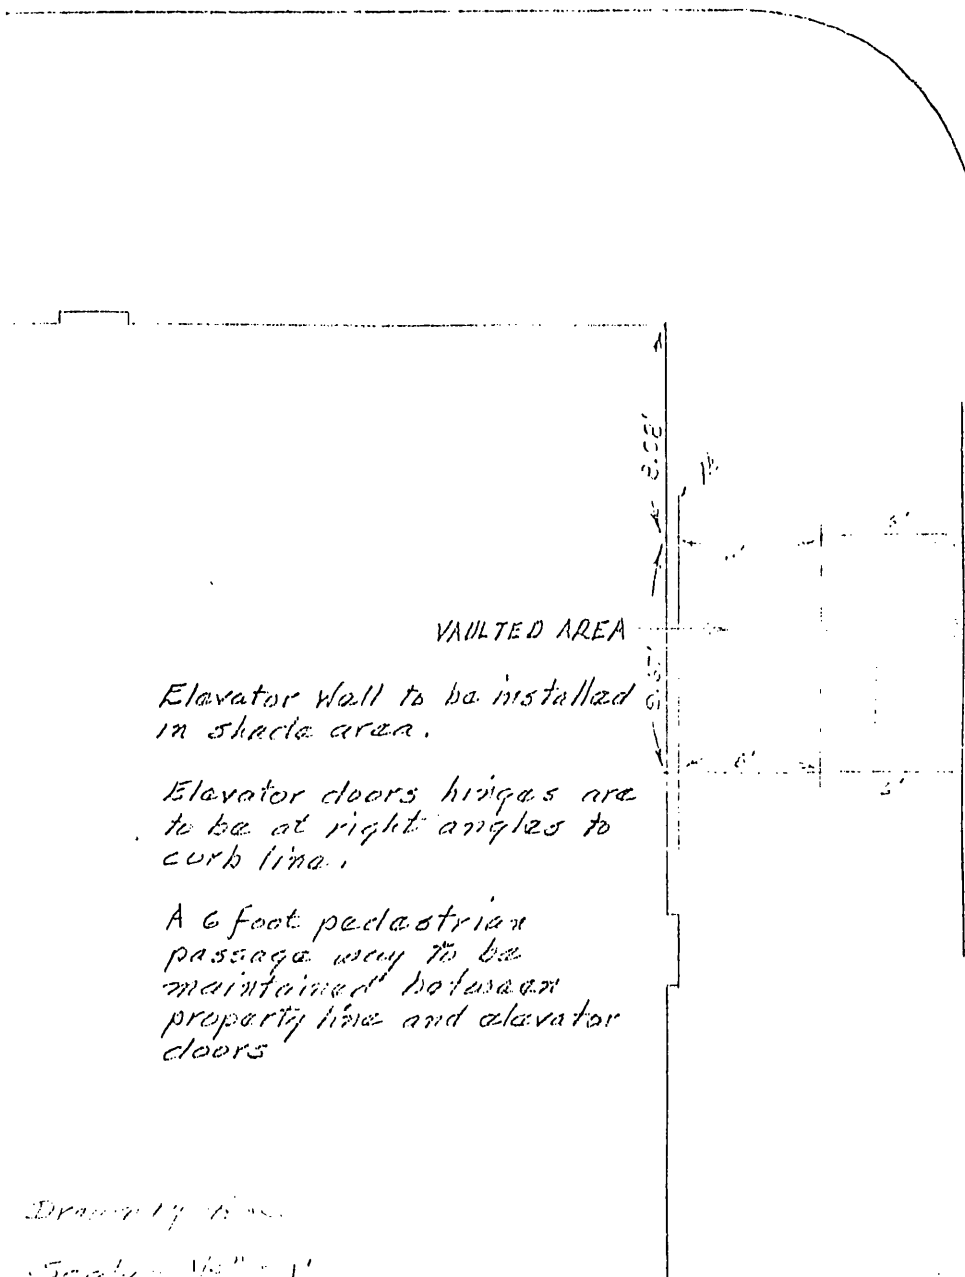 8.08'
6'
VAULTED AREA
Elevator Wall to be installed
in shade area.
9.67'
6'
Elevator doors hinges are
to be at right angles to
curb line.
A 6 foot pedestrian
passage way to be
maintained between
property line and elevator
doors
Drawn by
Scale 1'